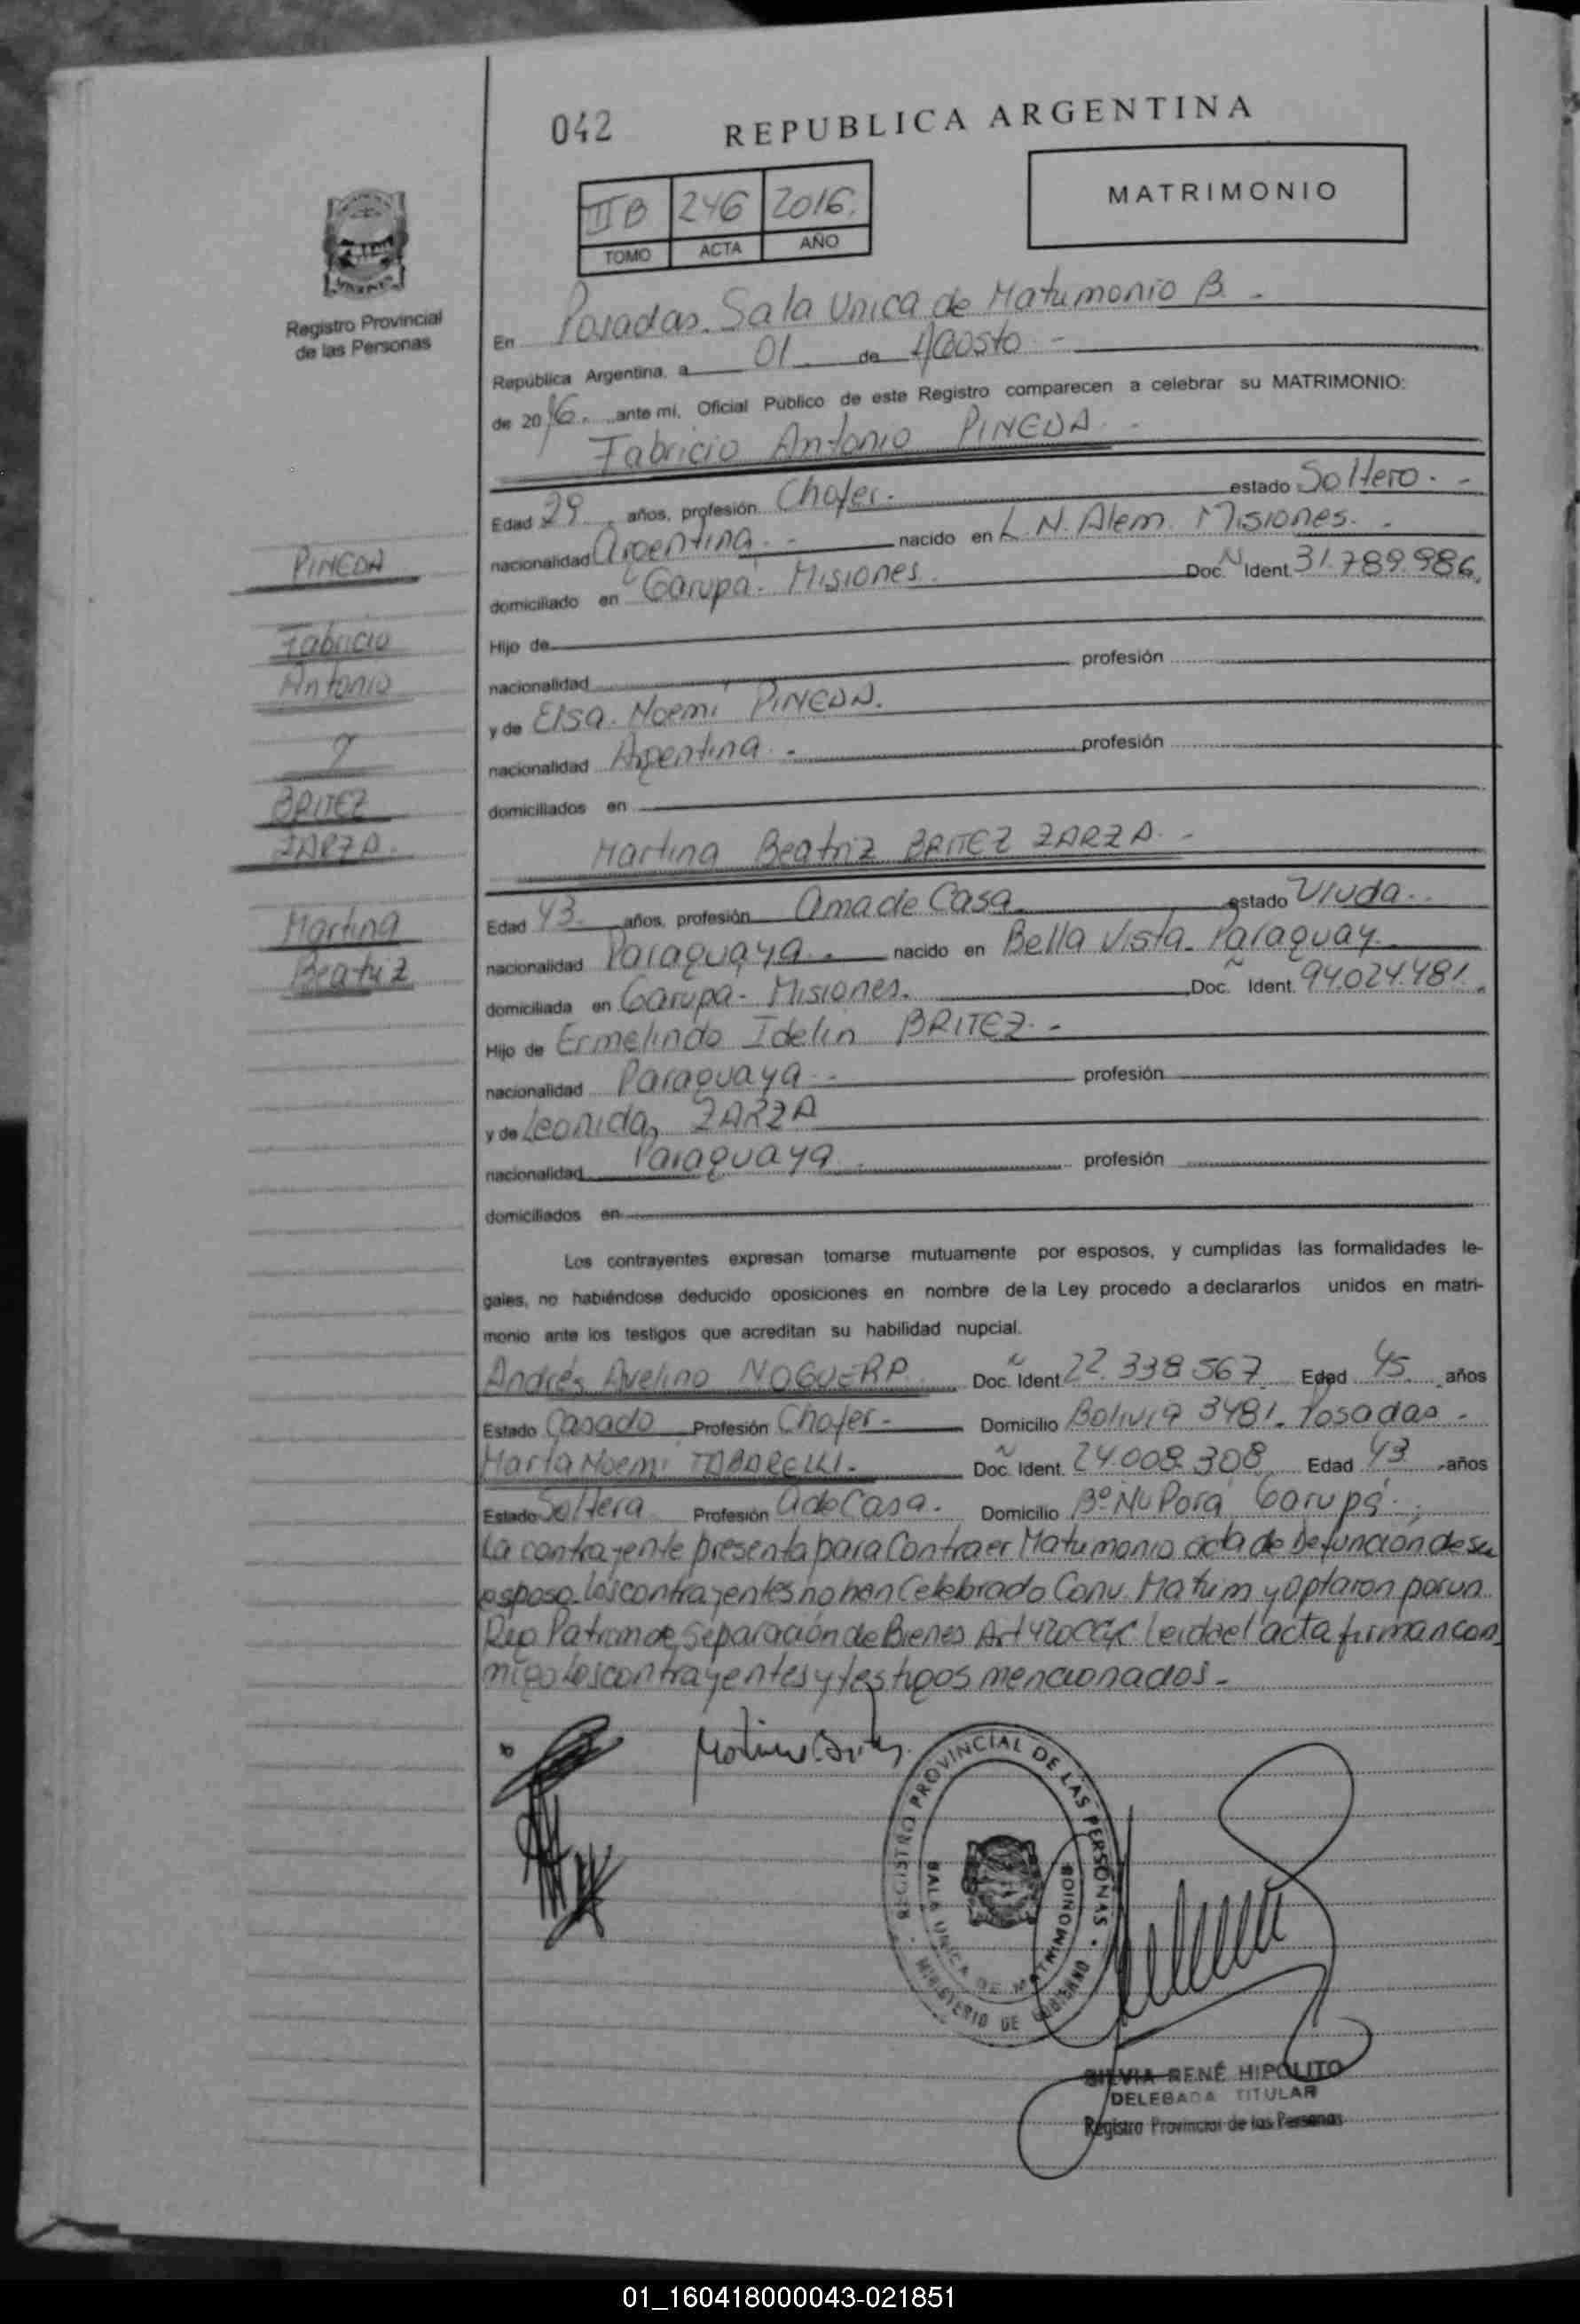 042
REPUBLICA ARGENTINA
III B 246 2016.
TOMO ACTA AÑO
MATRIMONIO
Registro Provincial
de las Personas
En Posadas. Sala Unica de Matrimonio B. -
República Argentina, a 01 de Agosto -
de 2016. ante mí, Oficial Público de este Registro comparecen a celebrar su MATRIMONIO:
Fabricio Antonio PINEDA. -
Edad 29. años, profesión Chofer. estado Soltero. -
nacionalidad Argentina. - nacido en L. N. Alem. Misiones. -
domiciliado en Garupá. Misiones. Doc. N Ident. 31.789.986.
Hijo de
nacionalidad profesión
y de Elsa. Noemí PINEDA.
nacionalidad Argentina. - profesión
domiciliados en
Martina Beatriz BRITEZ ZARZA. -
Edad 43. años, profesión Ama de Casa. estado Viuda. -
nacionalidad Paraguaya. - nacido en Bella Vista. Paraguay.
domiciliada en Garupa- Misiones. Doc. Ident. 94.024.481.
Hijo de Ermelindo Idelin BRITEZ. -
nacionalidad Paraguaya. - profesión
y de Leonida ZARZA
nacionalidad Paraguaya. profesión
domiciliados en
Los contrayentes expresan tomarse mutuamente por esposos, y cumplidas las formalidades le-
gales, no habiéndose deducido oposiciones en nombre de la Ley procedo a declararlos unidos en matri-
monio ante los testigos que acreditan su habilidad nupcial.
Andrés Avelino NOGUERA. Doc. Ident 22.338.567. Edad 45. años
Estado Casado Profesión Chofer- Domicilio Bolivia 3481. Posadas -
Marta Noemi TABARELLI. Doc. Ident. 24.008.308 Edad 43 años
Estado Soltera Profesión A de Casa. Domicilio Bº Ñu Porá Garupá.
La contrayente presenta para Contraer Matrimonio acta de Defuncion de su
esposo. Los contrayentes no han Celebrado Conv. Matrim y optaron por un
Reg. Patrim de Separación de Bienes Art 420 CCyC Leida el acta firman con
migo Los contrayentes y testigos mencionados. -
PINEDA
Fabricio
Antonio
y
BRITEZ
ZARZA.
Martina
Beatriz
REGISTRO PROVINCIAL DE LAS PERSONAS
SALA UNICA DE MATRIMONIOS
MINISTERIO DE GOBIERNO
SILVIA RENÉ HIPOLITO
DELEGADA TITULAR
Registro Provincial de las Personas
01_160418000043-021851